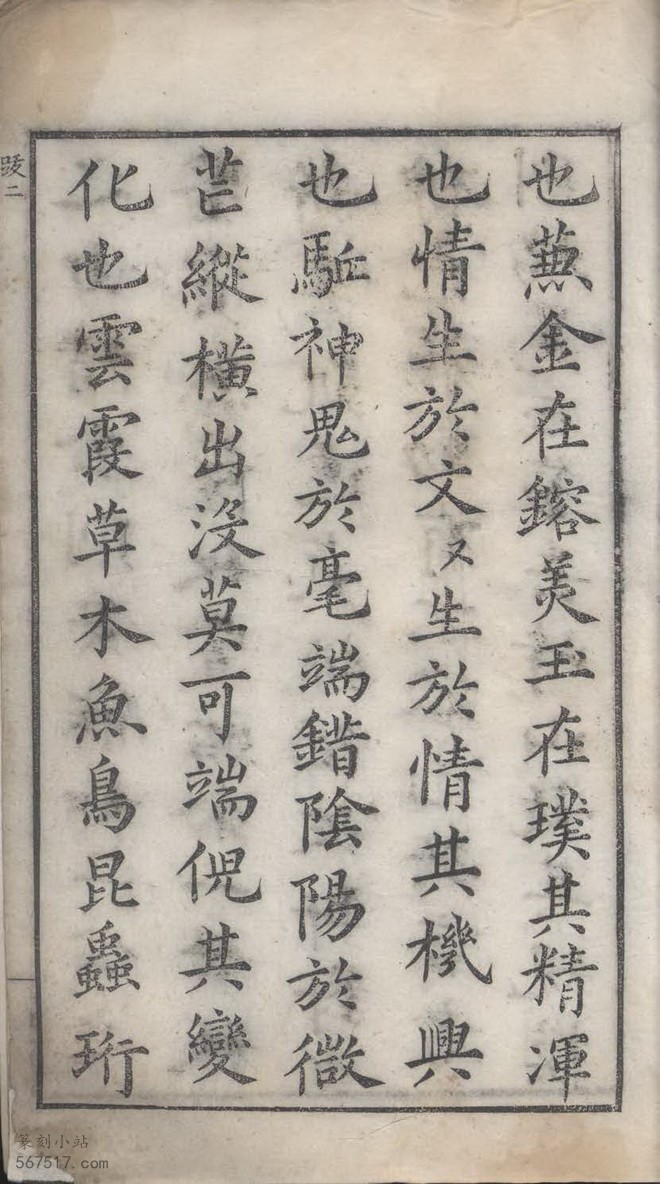 也蒸金在鎔美玉在璞其精渾
也情生於文又生於情其機興
也駈神鬼於毫端錯陰陽於微
芒縱橫出没莫可端倪其變
化也雲霞草木魚鳥昆蟲珩
跋二
篆刻小站
567517.com